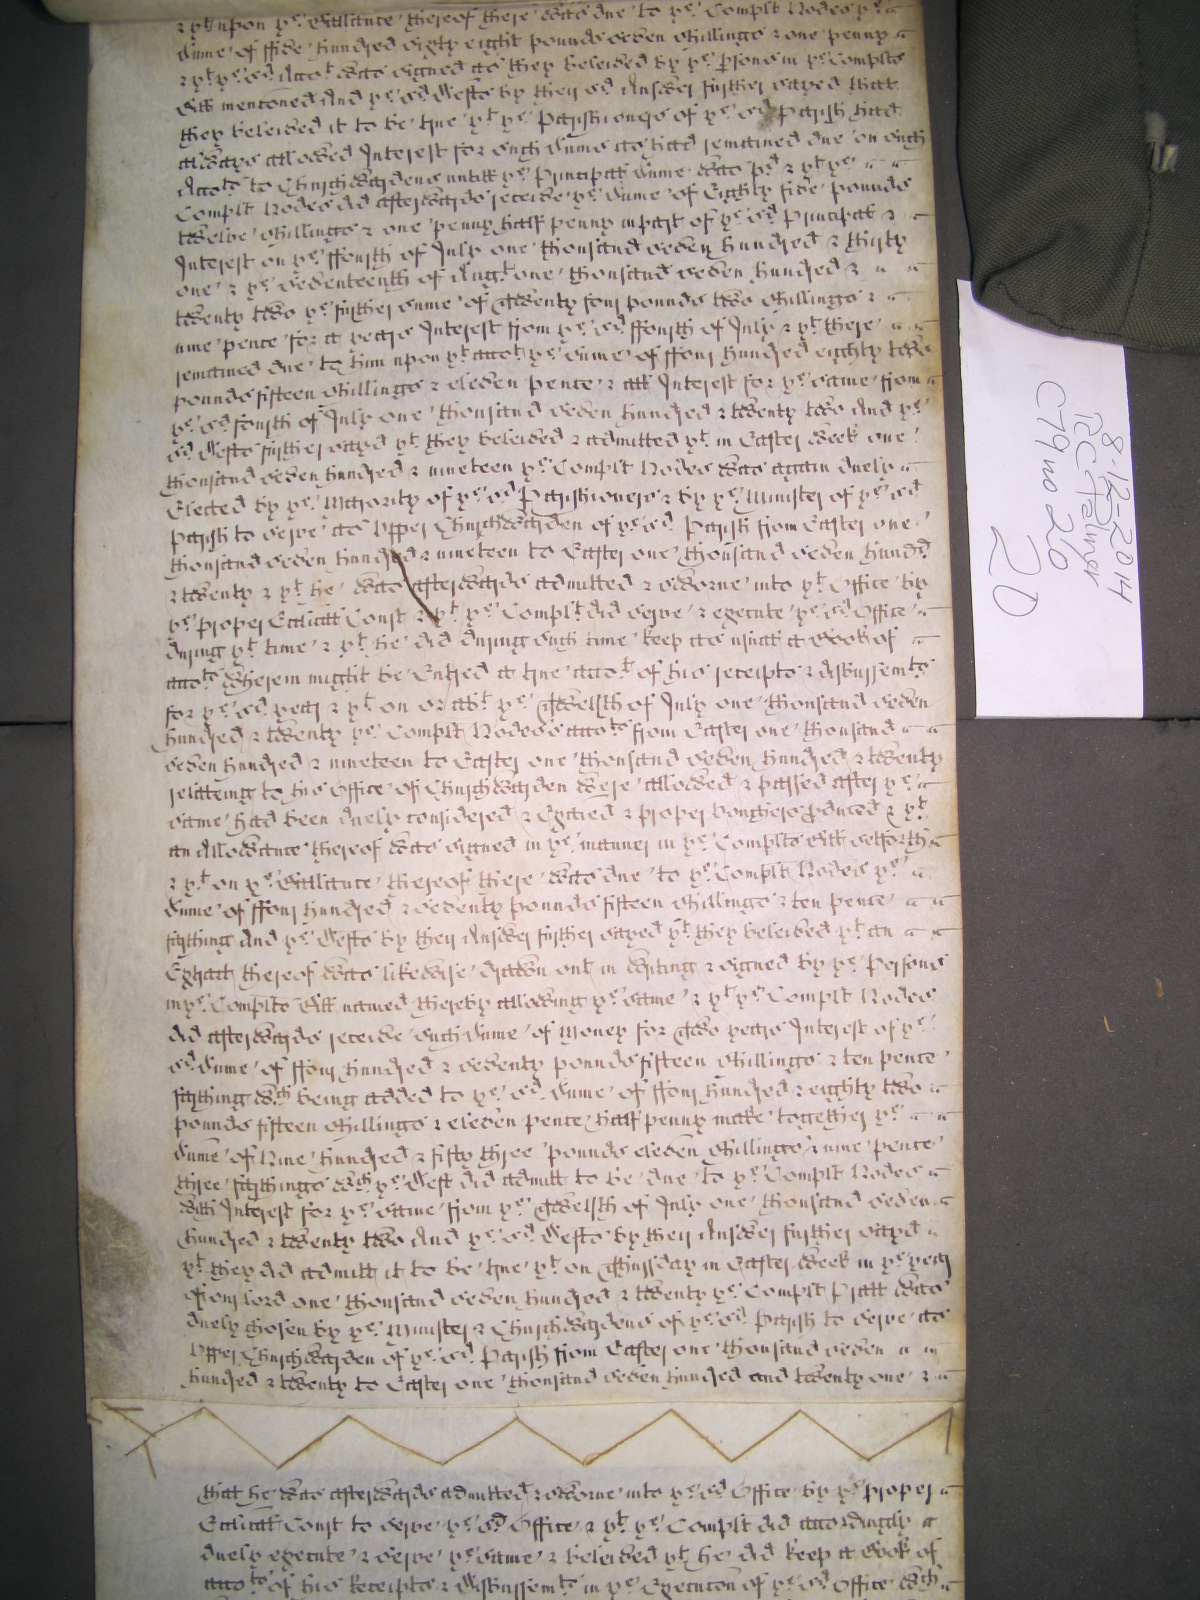 & yt upon ye Ballance thereof there was due to ye Complt Nodes ye
Sume of ffive hundred sixty eight pounds seven shillings & one penny
& yt ye sd Accot was signed as they beleived by ye psons in ye Complts
Bill mentoned And ye sd Defts by their sd Answer further sayed that
they beleived it to be true yt ye Parishioners of ye sd Parish had
allways allowed Interest for such sums as had remained due on such
Accots to Churchwardens untill ye Principall sume was pd & yt ye
Complt Nodes did afterwards receive ye sume of Eighty five pounds
twelve shillings & one penny half penny in part of ye sd Principall &
Interest on ye ffourth of July one thousand seven hundred & thirty
one & ye seventeenth of Augt one thousand seven hundred &
twenty two ye further sume of Twenty four pounds two shillings &
nine pence for a years Interest from ye sd ffourth of July & yt there
remained due to him upon yt accot ye sume of ffour hundred eighty two
pounds fifteen shillings & eleven pence & all Interest for ye same from
ye sd fourth of July one thousand seven hundred & twenty two And ye
sd Defts further sayd yt they beleived & admitted yt in Easter week one
thousand seven hundred & nineteen ye Complt Nodes was again duely
Elected by ye Majority of ye sd Parishioners & by ye Minister of ye sd
Parish to serve as Upper Churchwarden of ye sd Parish from Easter one
thousand seven hundred & nineteen to Easter one thousand seven hundd
& twenty & yt he was afterwards admitted & sworne into yt Office by
ye proper Ecclicall Court & yt ye Complt did serve & execute ye sd Office
during yt time & yt he did during such time keep as usuall a Book of
accots wherein might be Entred a true accot of his receipts & disbursemts
for ye sd year & yt on or abt ye Twelfth of July one thousand seven
hundred & twenty ye Complt Nodes's accots from Easter one thousand
seven hundred & nineteen to Easter one thousand seven hundred & twenty
relateing to his Office of Churchwarden were allowed & passed after ye
same had been duely considered & Exaied & proper vouchers pduced & yt
an Allowance thereof was signed in ye manner in ye Complts Bill setforth
& yt on ye Ballance thereof there was due to ye Complt Nodes ye
Sume of ffour hundred & seventy pounds fifteen shillings & ten pence
farthing And ye Defts by their Answer further sayed yt they beleived yt an
Extract thereof was likewise drawn out in writing & signed by ye Persons
in ye Complts Bill named thereby allowing ye same & yt ye Complt Nodes
did afterwards receive such Sume of Money for Two years Interest of ye
sd Sume of ffour hundred & seventy pounds fifteen shillings & ten pence
farthing wch being added to ye sd Sume of ffour hundred & eighty two
pounds fifteen shillings & eleven pence half penny make together ye
Sume of Nine hundred & fifty three pounds eleven shillings & nine pence
three farthings wch ye Deft did admitt to be due to ye Complt Nodes
with Interest for ye same from ye Twelfth of July one thousand seven
hundred & twenty two And ye sd Defts by their Answer further sayd
yt they did admitt it to be true yt on Thursday in Easter week in ye year
of our Lord one thousand seven hundred & twenty ye Complt Pratt was
duely chosen by ye Minister & Churchwardens of ye sd Parish to serve as
Upper Churchwarden of ye sd Parish from Easter one thousand seven
hundred & twenty to Easter one thousand seven hundred and twenty one &
that he was afterwards admitted & sworne into ye sd Office by ye proper
Ecclicall Court to serve ye sd Office & yt ye Complt did accordingly
duely execute & serve ye same & beleived yt he did keep a Book of
accots of his Receipts & Disbursemts in ye Execucon of ye sd Office wch
8-12-2014
C79 no 20
20